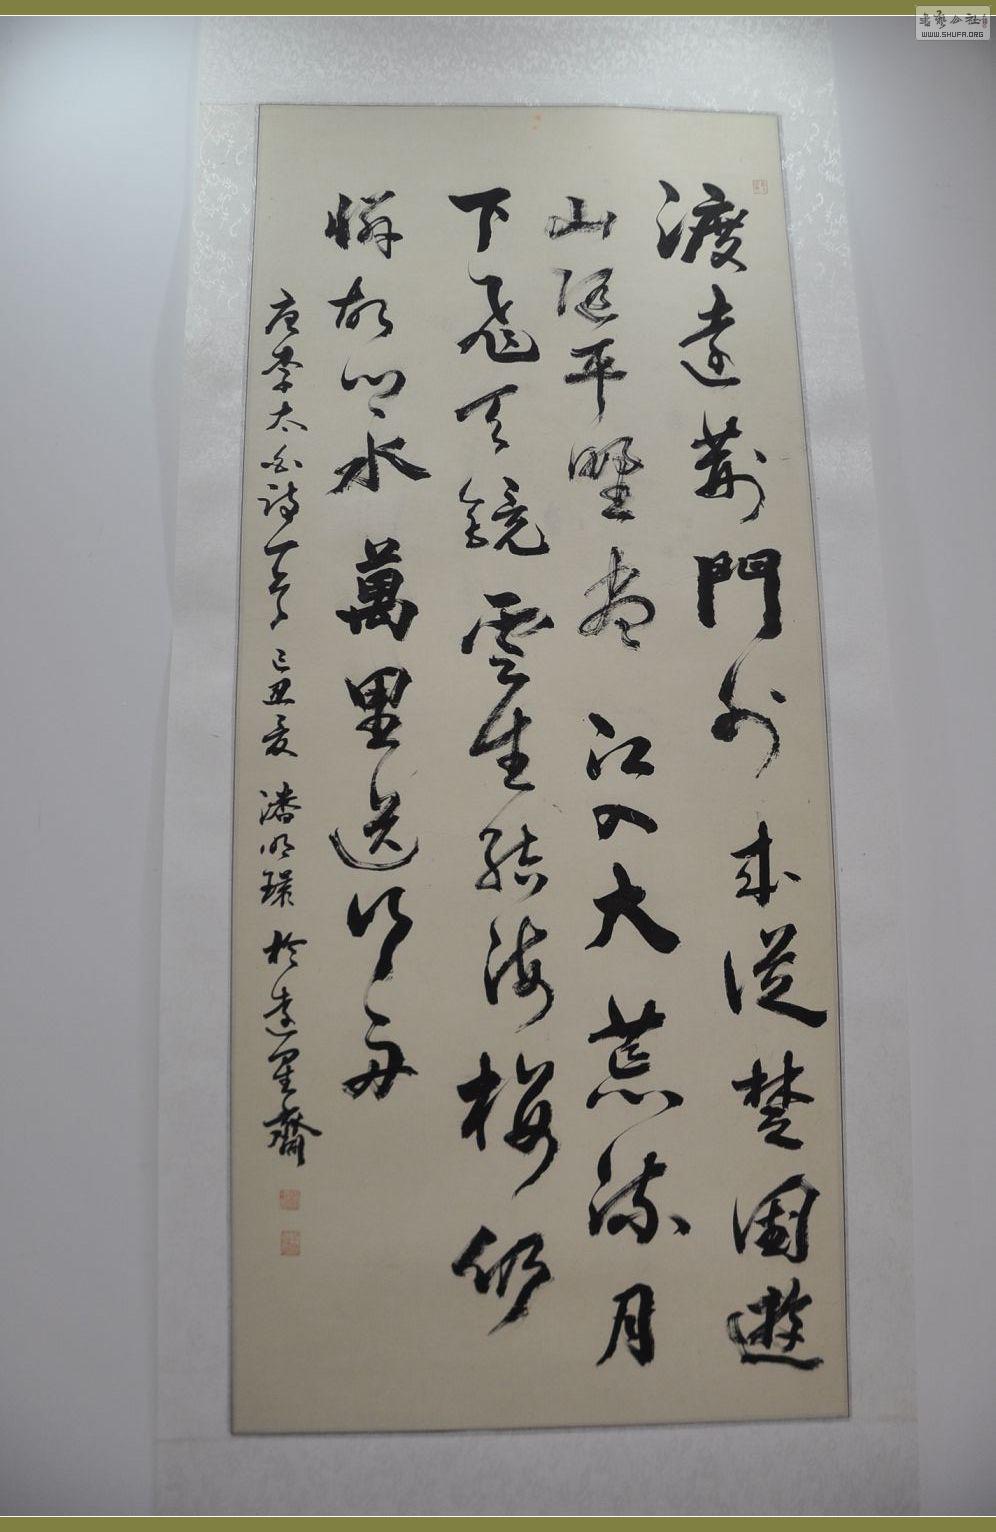 書藝公社
WWW.SHUFA.ORG
渡遠荊門外來從楚國遊
山隨平野盡江入大荒流月
下飛天鏡雲生結海樓仍
憐故鄉水萬里送行舟
唐李太白詩一首己丑夏潘明於遠星齋